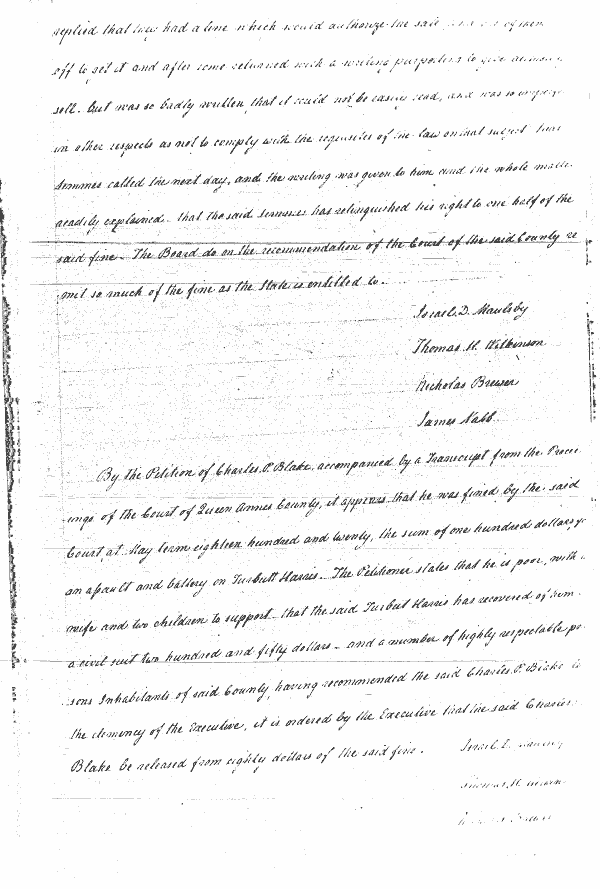 replied that they had a line which would authorize the sale and one of them
off to get it and after some returned with a writing purporting to give
sell. but was so badly written, that it could not be easily read, and was so
in other respects as not to comply with the requisites of the law on that subject that
Semmes called the next day, and the writing was given to him and the whole matter
readily explained - that the said Semmes has relinquished his right to one half of the
said fine - The Board do on the recommendation of the Court of the said County re
mit so much of the fine as the State is entitled to.
Israel D. Maulsby
Thomas H. Wilkinson
Nicholas Brewer
James Nabb.
By the Petition of Charles P. Blake, accompanied by a Transcript from the Procee
ings of the Court of Queen Annes County, it appears that he was fined by the said
Court, at May term eighteen hundred and twenty, the sum of one hundred dollars,
an assault and battery on Turbutt Harris - The Petitioner states that he is poor, with a
wife and two children to support - that the said Turbut Harris has recovered of him
a civil suit two hundred and fifty dollars - and a number of highly respectable pe
sons Inhabitants of said County, having recommended the said Charles P. Blake to
the clemency of the Executive, it is ordered by the Executive that the said Charles
Blake be released from eighty dollars of the said fine.
Israel D. Maulsby
Thomas H.
Brewer